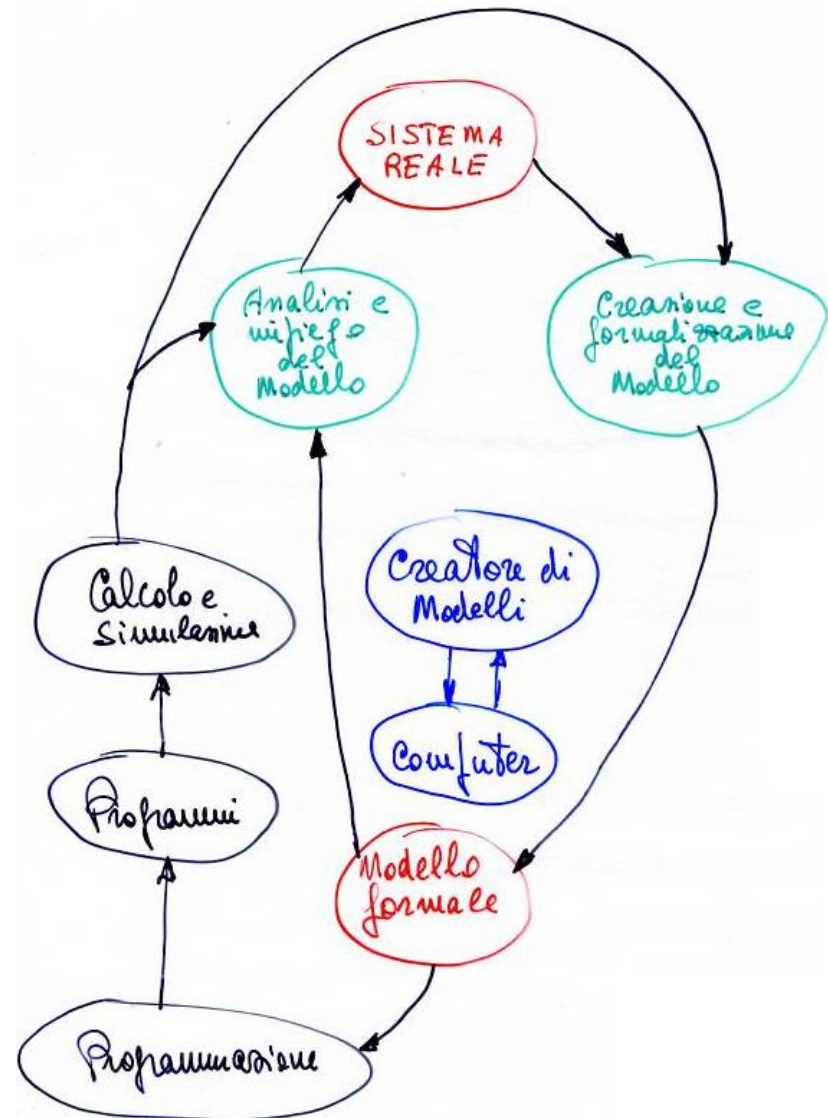 SISTEMA
REALE
Analisi e
impiego
del
Modello
Creazione e
formalizzazione
del
Modello
Creatore di
Modelli
Calcolo e
Simulazione
Computer
Programmi
Modello
formale
Programmazione